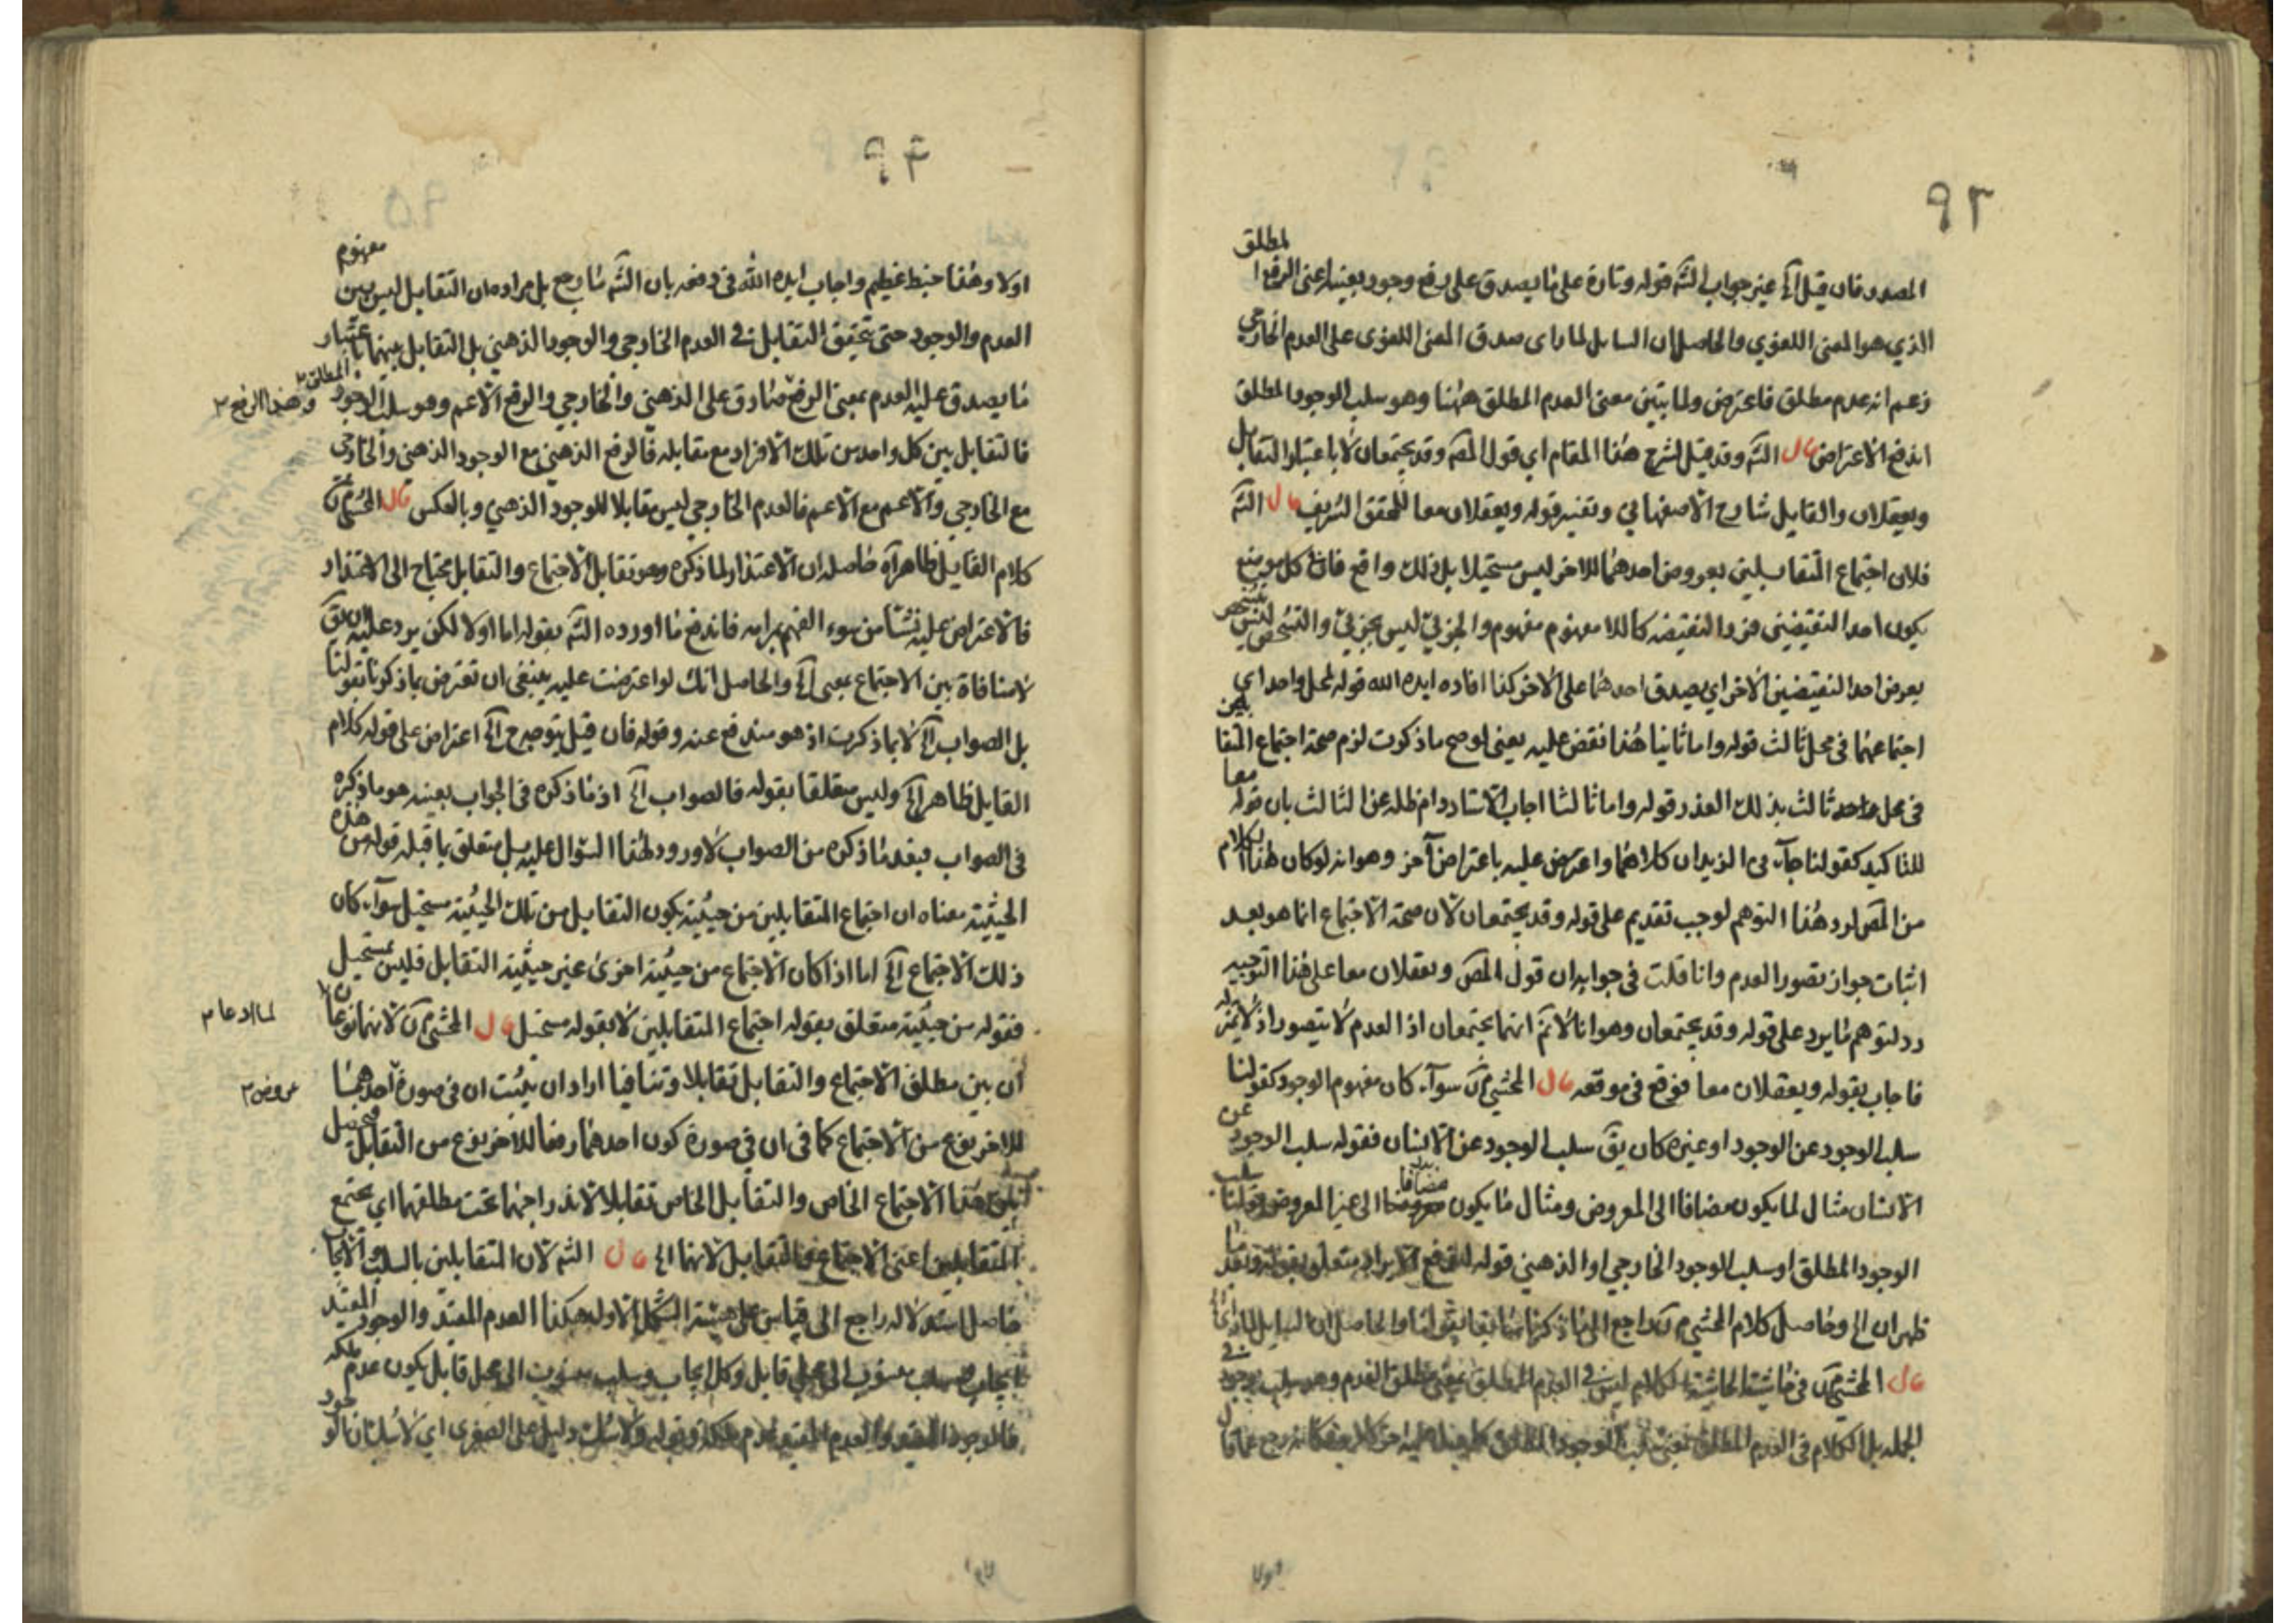 ٩٣
المصدر فان قيل آه عين جواب الشه قوله وتارة على ما يصدق على رفع وجود بعينه اعنى الرفع المطلق
الذي هو المعنى اللغوي والحاصل ان السايل لما راى صدق المعنى اللغوى على العدم الخارجي
زعم انه عدم مطلق فاعترض ولما بيّن معنى العدم المطلق ههنا وهو سلب الوجود المطلق
اندفع الاعتراض قال الشه وقد قيل لشرح هذا المقام اي قول المصه وقد يجتمعان لا باعتبار التقابل
ويعقلان والقايل شارح الاصفهاني وتفسير قوله ويعقلان معا للمحقق الشريف قال الشه
فلان اجتماع المتقابلين بعروض احدهما للاخر ليس مستحيلا بل ذلك واقع فان كل موضع
يكون احد النقيضين فردا لنقيضه كاللا مفهوم مفهوم والجزئي ليس بجزئي والتشخص ليس بتشخص
يعرض احد النقيضين الاخر اي يصدق احدهما على الاخر كذا افاده ايده الله قوله لمحل واحد اي
اجتماعهما في محل ثالث قوله واما ثانيا هذا نقض عليه يعنى لوصح ما ذكرت لزم صحة اجتماع المتقابلين
فى محل ثالث بذلك العذر قوله واما ثالثا اجاب الاستاد دام ظله عن الثالث بان قوله معا
للتاكيد كقولنا جاءنى الزيدان كلاهما واعترض عليه باعتراض آخر وهو انه لو كان هذا الكلام
من المصه لرد هذا التوهم لوجب تقديم على قوله وقد يجتمعان لان صحة الاجتماع انما هو بعد
اثبات جواز تصور العدم وانا قلت في جوابه ان قول المصه ويعقلان معا على هذا التوجيه
رد لتوهم ما يرد على قوله وقد يجتمعان وهو انا لا نم انهما يجتمعان اذ العدم لا يتصور اذ لا تميز له
فاجاب بقوله ويعقلان معا فوقع في موقعه قال المحشي سواء كان مفهوم الوجود كقولنا
سلب الوجود عن الوجود او غيره كان يق سلب الوجود عن الانسان فقوله سلب الوجود عن
الانسان مثال لما يكون مضافا الى المعروض ومثال ما يكون مضافا الى غير المعروض قولنا سلب
الوجود المطلق او سلب الوجود الخارجي او الذهني قوله متعلق بقوله
ظهر ان الخ وحاصل كلام المحشي راجع الى ما ذكرنا سابقا والحاصل ان السايل
قال المحشي فى حاشية الحاشية الكلام ليس في العدم المطلق بمعنى مطلق العدم وهو سلب وجود
الجمله بل الكلام فى العدم المطلق بمعنى سلب الوجود المطلق
٩٤
اولا وهذا خبط عظيم واجاب ايده الله فى دفعه بان الشه بل مراده ان التقابل ليس بين مفهوم
العدم والوجود حتى تحقق التقابل في العدم الخارجي والوجود الذهني بل التقابل بينهما باعتبار
ما يصدق عليه العدم بمعنى الرفع صادق على الذهني والخارجي والرفع الاعم وهو سلب الوجود المطلق
فالتقابل بين كل واحد من تلك الافراد مع مقابله فالرفع الذهني مع الوجود الذهني والخارجي
مع الخارجي والاعم مع الاعم فالعدم الخارجي ليس مقابلا للوجود الذهني وبالعكس قال المحشي
كلام القايل ظاهر آه حاصله ان الاعتذار لما ذكره وهو تقابل الاجتماع والتقابل محتاج الى الاعتذار
فالاعتراض عليه نشأ من سوء الفهم برامه فاندفع ما اورده الشه بقوله اما اولا لكن يرد عليه ان يق
لا منافاة بين الاجتماع بمعنى آه والحاصل انك لو اعترضت عليه ينبغى ان تعترض بما ذكرنا بقولنا
بل الصواب آه لا بما ذكرت اذ هو مندفع عنه وقوله فان قيل توجيه آه اعتراض على قوله كلام
القايل ظاهر آه وليس متعلقا بقوله فالصواب آه اذ ما ذكره فى الجواب بعينه هو ما ذكره
فى الصواب فبعد ما ذكره من الصواب لا ورود لهذا السؤال عليه بل متعلق بما قبله قوله من هذه
الحيثية معناه ان اجتماع المتقابلين من حيثية يكون التقابل من تلك الحيثية مستحيل سواء كان
ذلك الاجتماع آه اما اذا كان الاجتماع من حيثية اخرى غير حيثية التقابل فليس بمستحيل
فقوله من حيثية متعلق بقوله اجتماع المتقابلين لا بقوله مستحيل قال المحشي لانهما نوعان
لما ادعا
ان بين مطلق الاجتماع والتقابل تقابلا وتنافيا اراد ان يثبت ان فى صورة احدهما
عروض
للاخر نوع من الاجتماع كما فى ان في صورة كون احدهما رفعا للاخر نوع من التقابل
هذا الاجتماع الخاص والتقابل الخاص تقابلا لاندراجهما تحت مطلقهما اي يجتمع
المتقابلين اعنى الاجتماع والتقابل لانهما الخ قال الشه لان المتقابلين بالسلب والايجاب
حاصل استدلاله راجع الى قياس على هيئة الشكل الاول هكذا العدم المقيد والوجود المقيد
ايجاب وسلب منسوب الى محل قابل وكل ايجاب وسلب منسوب الى محل قابل يكون عدم ملكه
فالوجود المقيد والعدم المقيد عدم ملكة وقوله دليل على الصغرى